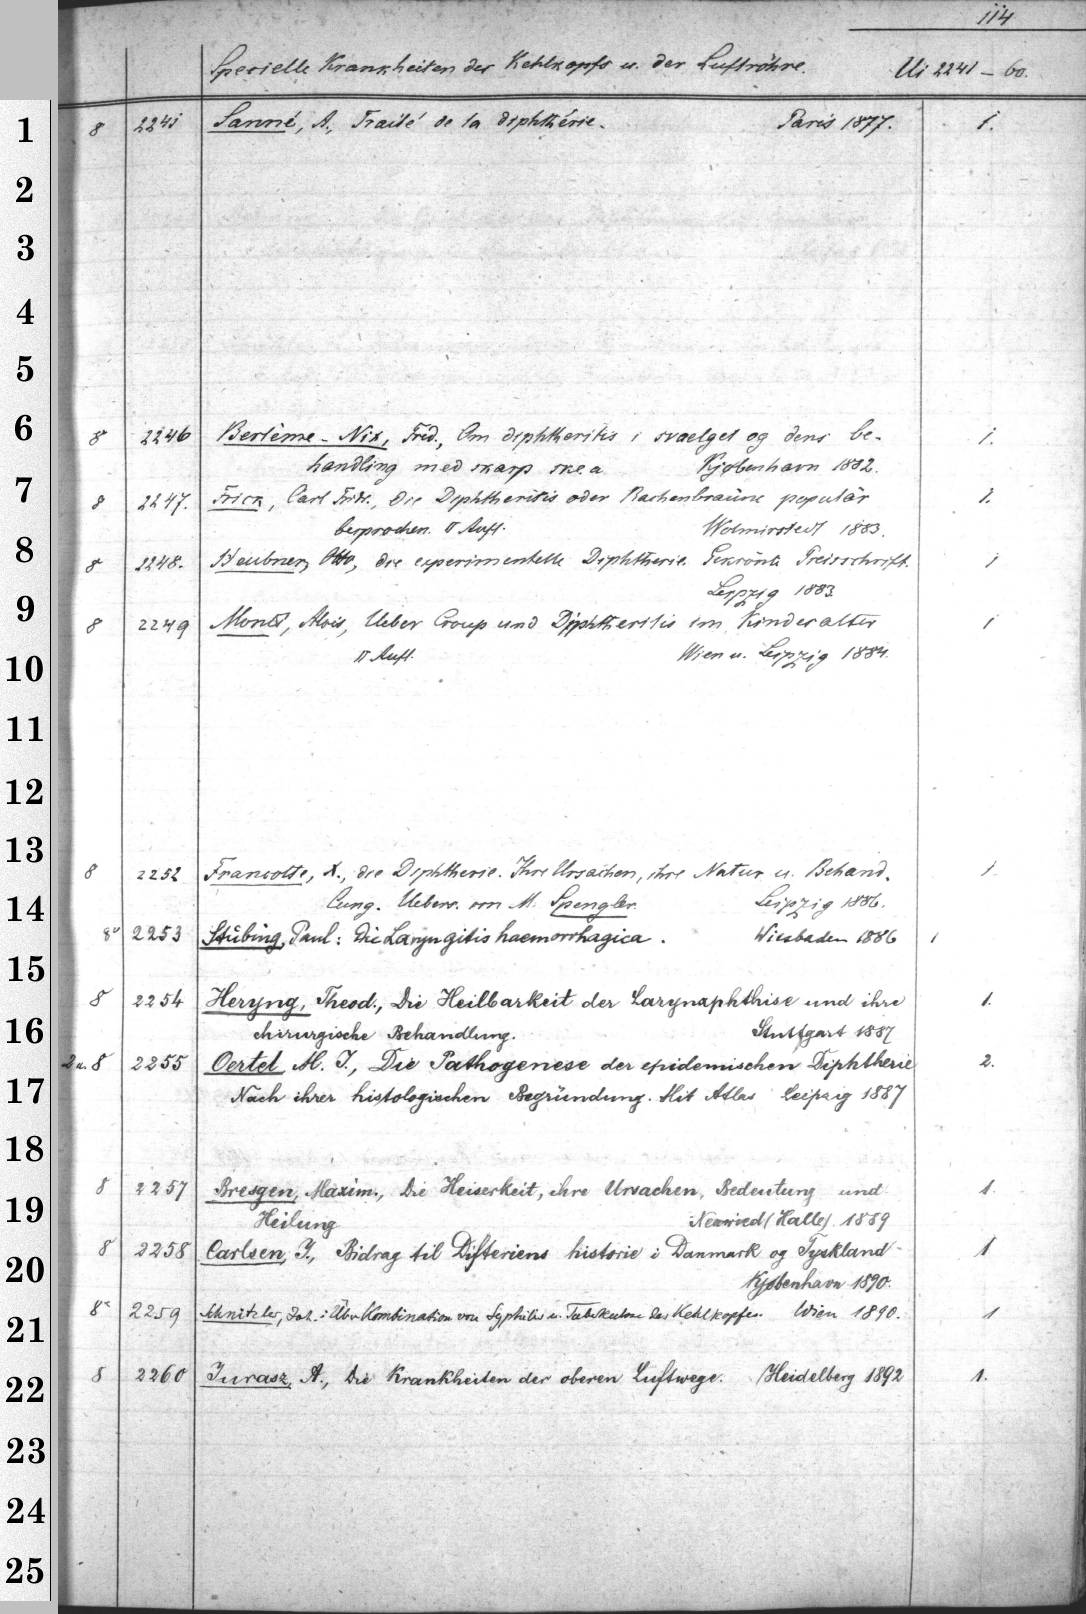 114
Spezielle Krankheiten des Kehlkopfs u. der Luftröhre. Ui 2241 – 60.
1 8 2241 Sanné, A., Traité de la diphthérie. Paris 1877. 1.
2
3
4
5
6 8 2246 Berlème-Nix, Fréd., Om diphtheritis i svaelget og dens be-
handling med skarp ske. a Kjøbenhavn 1882. 1.
7 8 2247. Frick, Carl Frdr., die Diphtheritis oder Rachenbräune populär 1.
besprochen. II Aufl. Wolmirstedt 1883.
8 8 2248. Heubner, Otto, die experimentelle Diphtherie. Gekrönte Preisschrift. 1
Leipzig 1883.
9 8 2249 Monti, Alois, Ueber Croup und Diphtheritis im Kindesalter 1
10 II Aufl. Wien u. Leipzig 1884.
11
12
13 8 2252 Francotte, X., die Diphtherie. Ihre Ursachen, ihre Natur u. Behand. 1
14 lung. Uebers. von M. Spengler. Leipzig 1886.
8° 2253 Stübing, Paul: Die Laryngitis haemorrhagica. Wiesbaden 1886 1
15 8 2254 Heryng, Theod., Die Heilbarkeit der Larynxphthise und ihre 1.
16 chirurgische Behandlung. Stuttgart 1887
2 u. 8 2255 Oertel M. J., Die Pathogenese der epidemischen Diphtherie 2.
17 Nach ihrer histologischen Begründung. Mit Atlas Leipzig 1887
18
8 2257 Bresgen, Maxim., Die Heiserkeit, ihre Ursachen, Bedeutung und 1.
19 Heilung Neuwied (Halle) 1889
8 2258 Carlsen, J., Bidrag til Difteriens historie i Danmark og Tyskland 1
20 Kjøbenhavn 1890.
21 8° 2259 Schnitzler, Joh.: Üb. Kombination von Syphilis u. Tuberkulose des Kehlkopfes. Wien 1890. 1
22 8 2260 Jurasz, A., Die Krankheiten der oberen Luftwege. Heidelberg 1892 1.
23
24
25